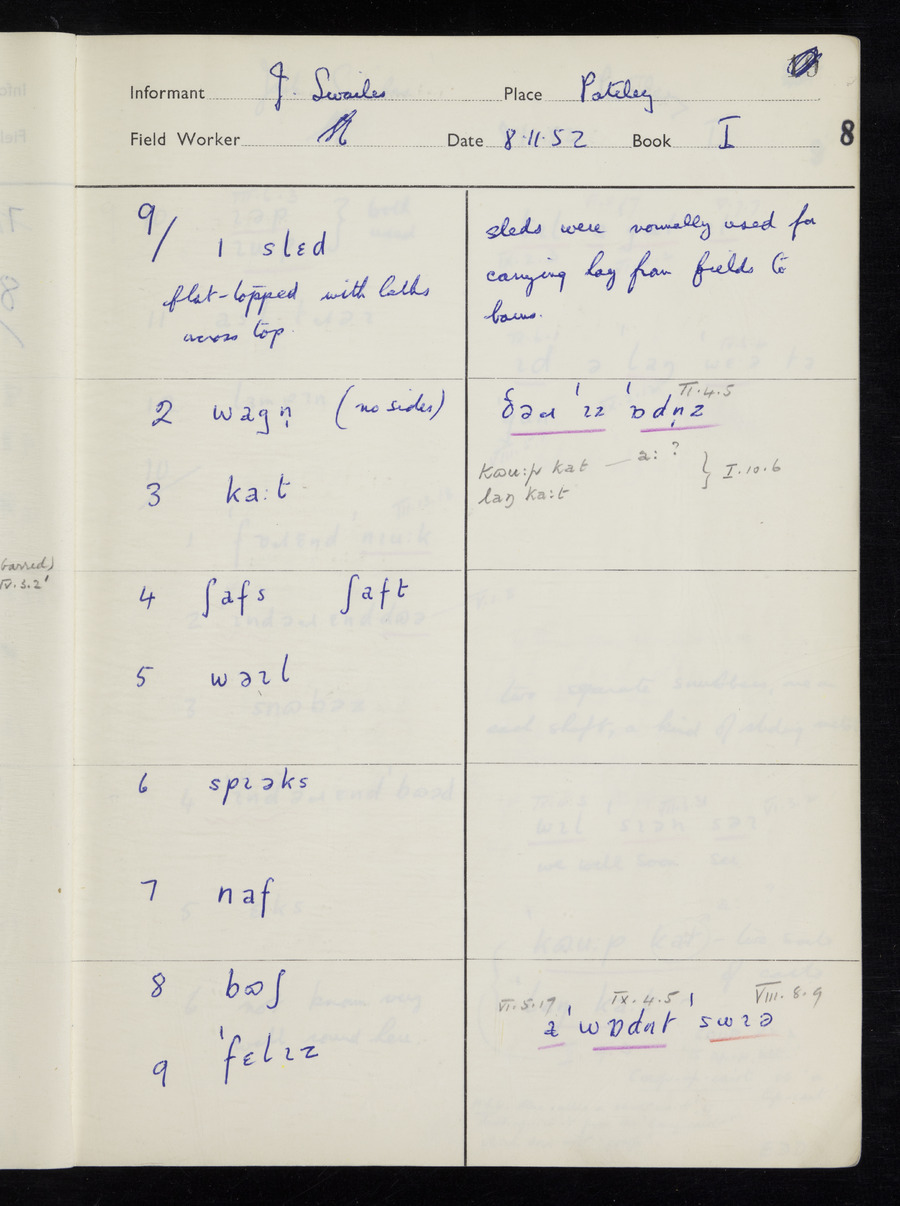 Informant J. Swailes Place Pateley
Field Worker Date 8·11·52 Book I 8
9/
1 slɛd
flat-topped with laths
across top.
sleds were normally used for
carrying hay from fields to
barns.
2 wagn̩ (no sides)
VI.4.5
3 ka:t
a: ?
kat
laŋ ka:t } I.10.6
barred)
IV.3.2'
4 ʃafs ʃaft
5 wəɪl
6 spɪəks
7 naf
8 bʊʃ
VI.5.17 IX.4.5 VIII.8.9
9 ˈfɛlɪz